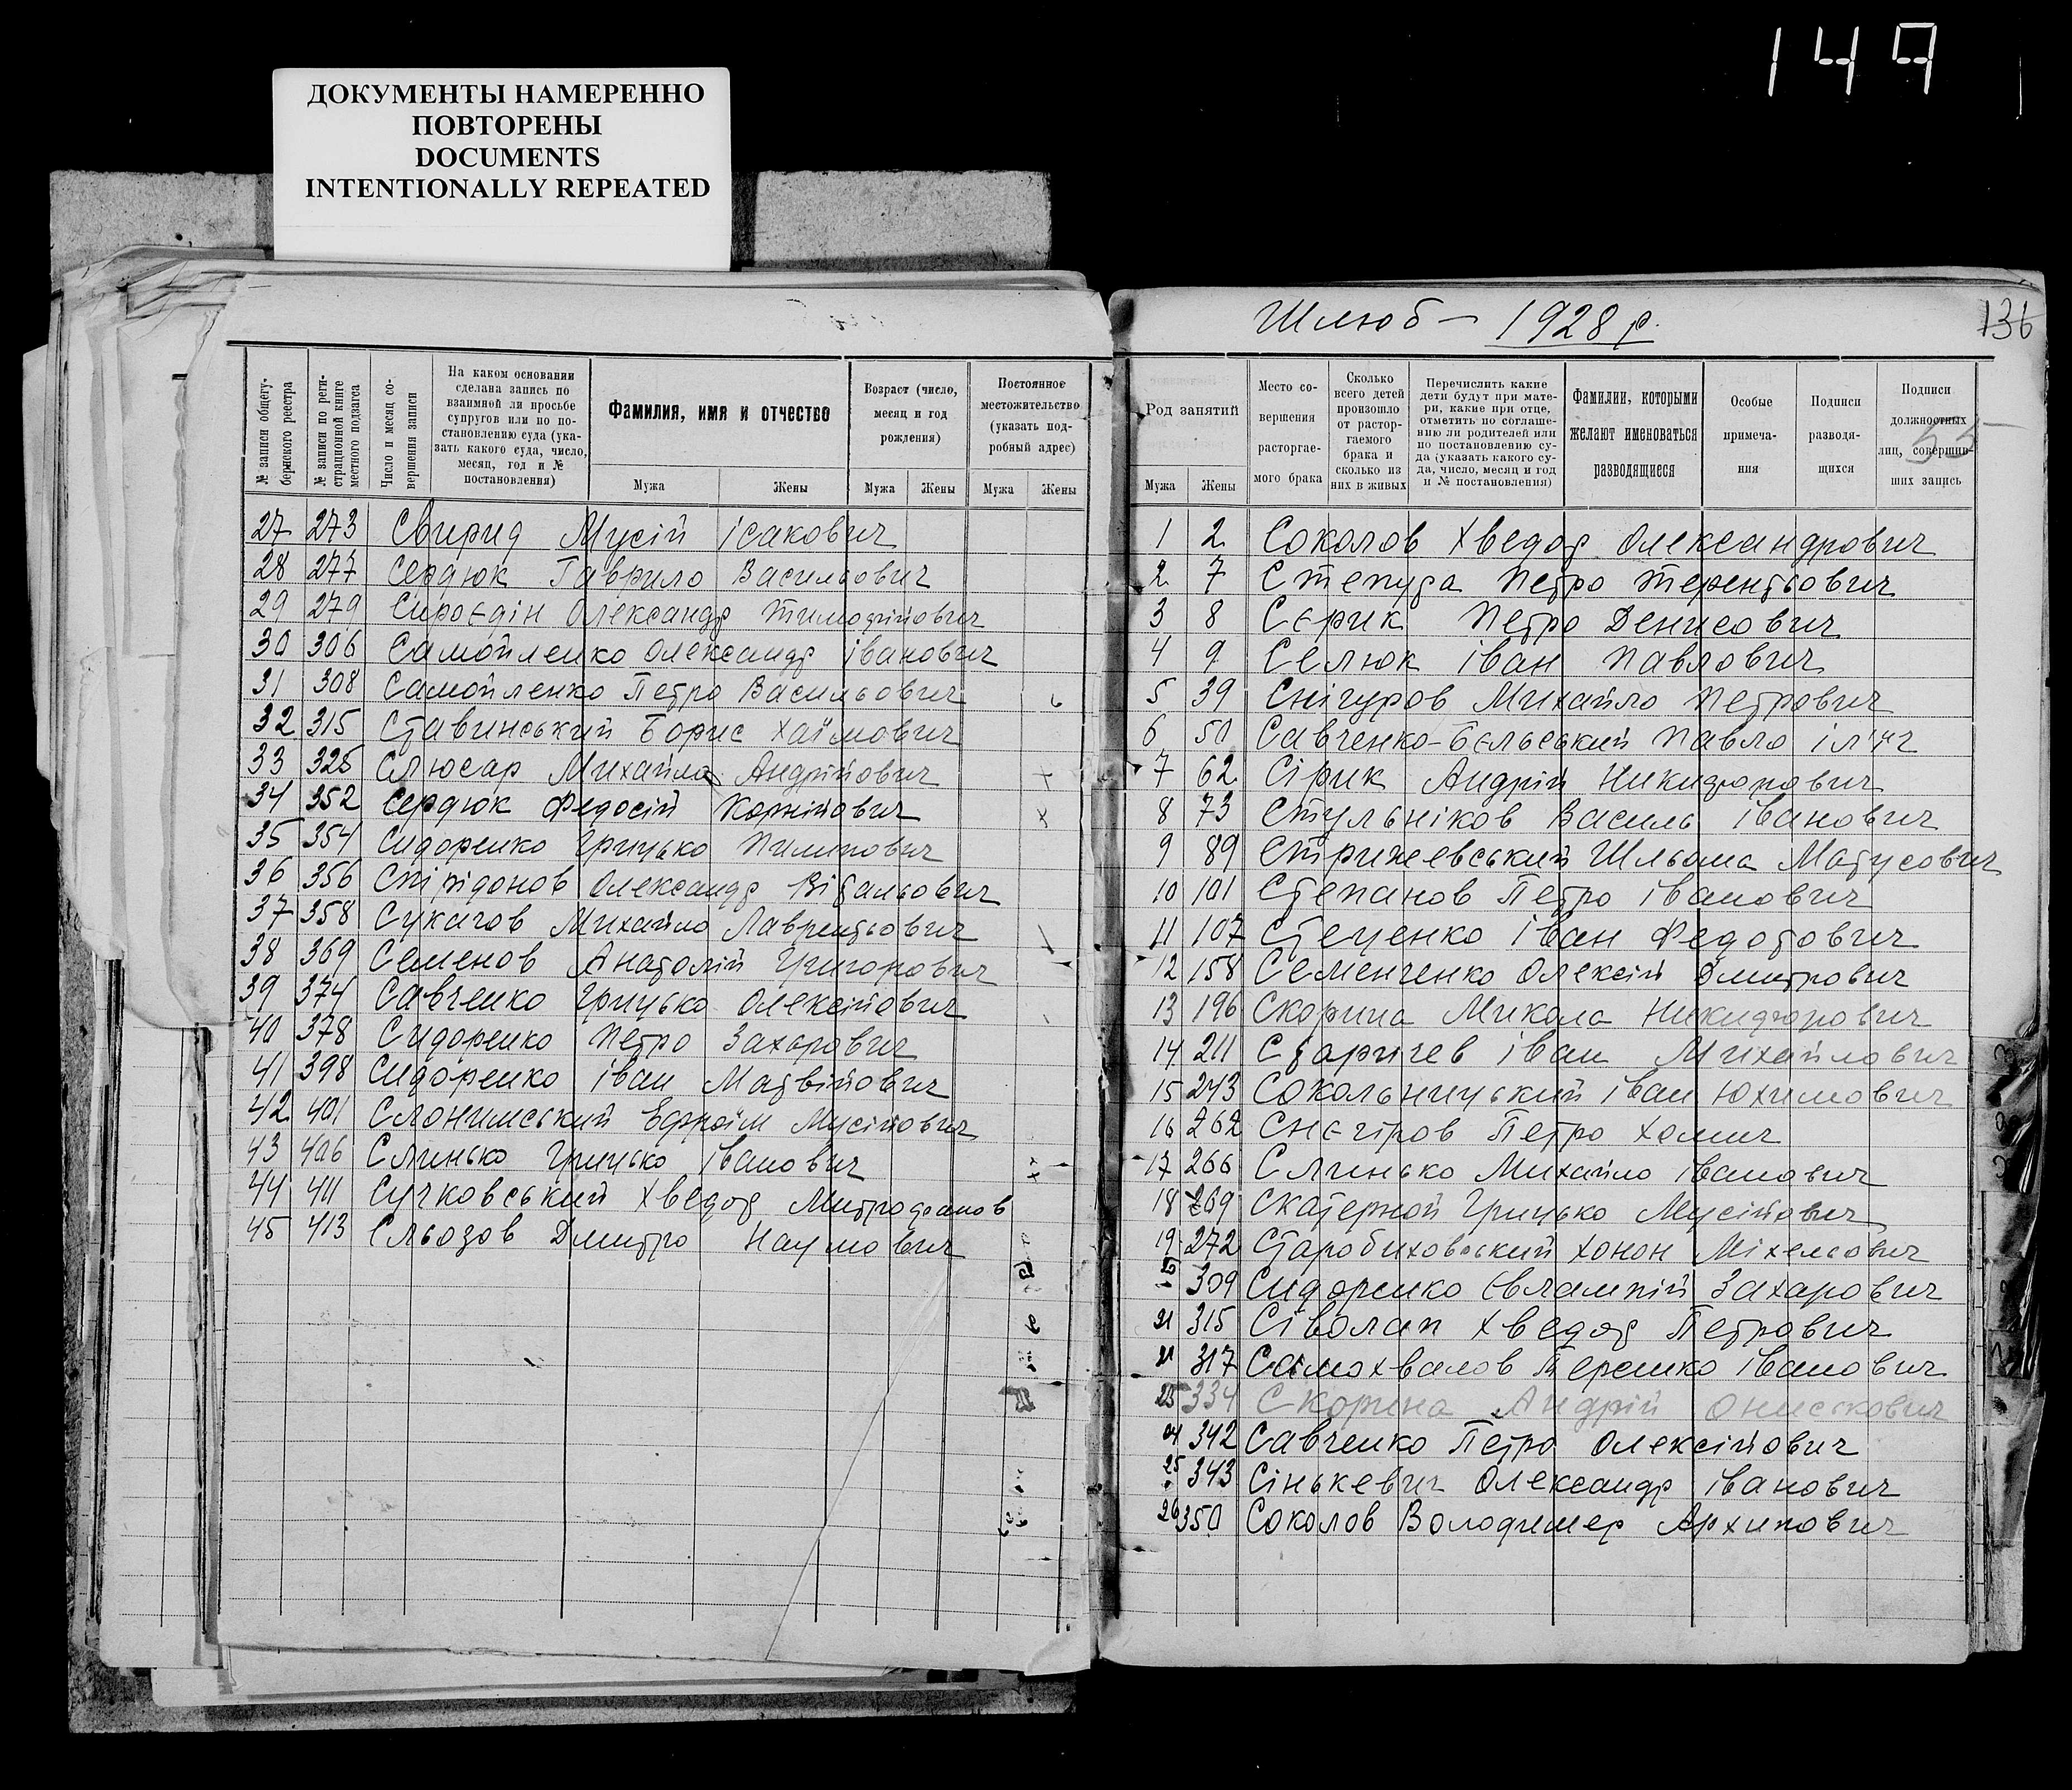 149
ДОКУМЕНТЫ НАМЕРЕННО
ПОВТОРЕНЫ
DOCUMENTS
INTENTIONALLY REPEATED
№ записи общегубернского реестра
№ записи по регистрационной книге местного подзагса
Число и месяц совершения записи
На каком основании сделана запись по взаимной ли просьбе супругов или по постановлению суда (указать какого суда, число, месяц, год и № постановления)
Фамилия, имя и отчество
Возраст (число, месяц и год рождения)
Постоянное местожительство (указать подробный адрес)
Мужа Жены Мужа Жены Мужа Жены
27 273 Свирид Мусій Ісакович
28 277 Сердюк Гаврило Васильович
29 279 Сироєдін Олександр Тимофійович
30 306 Самойленко Олександр Іванович
31 308 Самойленко Петро Васильович
32 315 Ставинський Борис Хаїмович
33 325 Слюсар Михайло Андрійович
34 352 Сердюк Федосій Корнійович
35 354 Сидоренко Грицько Пилипович
36 356 Спірідонов Олександр Вітальович
37 358 Сукачов Михайло Лаврентьович
38 369 Семенов Анатолій Григорович
39 374 Савченко Грицько Олексійович
40 378 Сидоренко Петро Захарович
41 398 Сидоренко Іван Матвійович
42 401 Слонимський Ефроїм Мусійович
43 406 Слинько Грицько Іванович
44 411 Сучковський Хведор Митрофанов
45 413 Сльозов Дмитро Наумович
Шлюб – 1928 р.
136
55
Род занятий
Место совершения расторгаемого брака
Сколько всего детей произошло от расторгаемого брака и сколько из них в живых
Перечислить какие дети будут при матери, какие при отце, отметить по соглашению ли родителей или по постановлению суда (указать какого суда, число, месяц и год и № постановления)
Фамилии, которыми желают именоваться разводящиеся
Особые примечания
Подписи разводящихся
Подписи должностных лиц, совершивших запись
Мужа Жены
1 2 Соколов Хведор Олександрович
2 7 Степура Петро Терентьович
3 8 Сєрик Петро Денисович
4 9 Селюк Іван Павлович
5 39 Снігуров Михайло Петрович
6 50 Савченко-Бєльський Павло Іл'їч
7 62 Сірик Андрій Никифорович
8 73 Стульніков Василь Іванович
9 89 Стрижевський Шльома Матусович
10 101 Степанов Петро Іванович
11 107 Стеценко Іван Федотович
12 158 Семенченко Олексій Дмитрович
13 196 Скорина Микола Никифорович
14 211 Старичев Іван Михайлович
15 243 Сокольницький Іван Юхимович
16 262 Снєгіров Петро Хомич
17 266 Слинько Михайло Іванович
18 269 Скатерной Грицько Мусійович
19 272 Старобиховський Хонон Міхельович
309 Сидоренко Євлампій Захарович
21 315 Сіволап Хведор Петрович
21 317 Самохвалов Терешко Іванович
334 Скорина Андрій Ониськович
24 342 Савченко Петро Олексійович
25 343 Сінькевич Олександр Іванович
26 350 Соколов Володимер Архипович